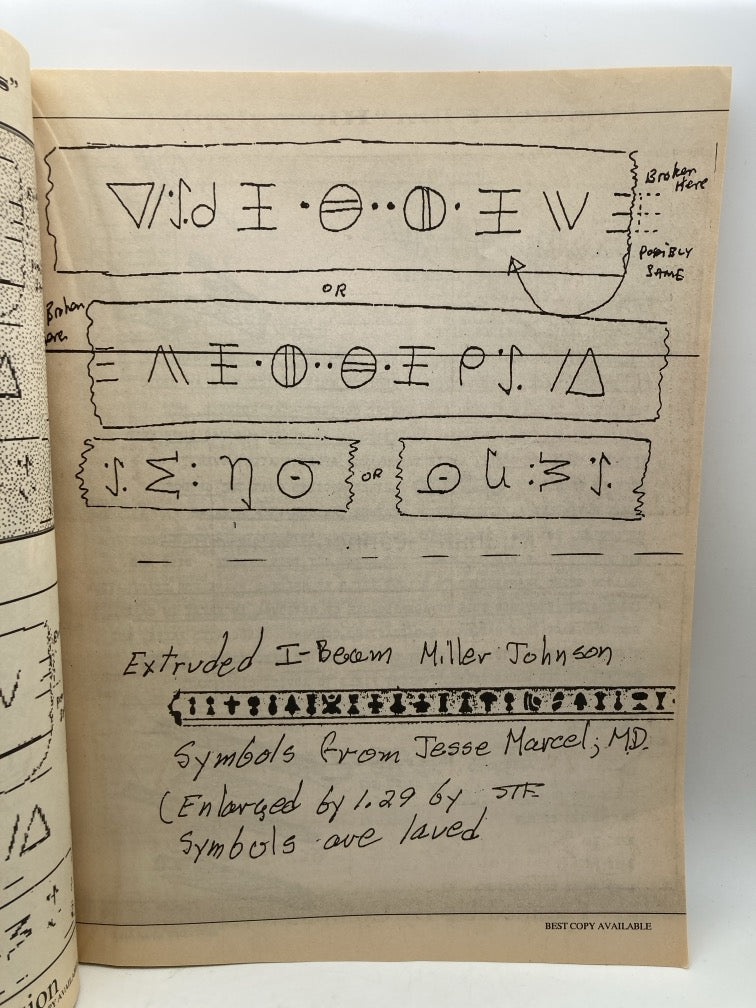 Broken
Here
POSSIBLY
SAME
OR
Broken
OR
Extruded I-Beam Miller Johnson
Symbols from Jesse Marcel, M.D.
(Enlarged by 1.29 by STF
Symbols are
BEST COPY AVAILABLE